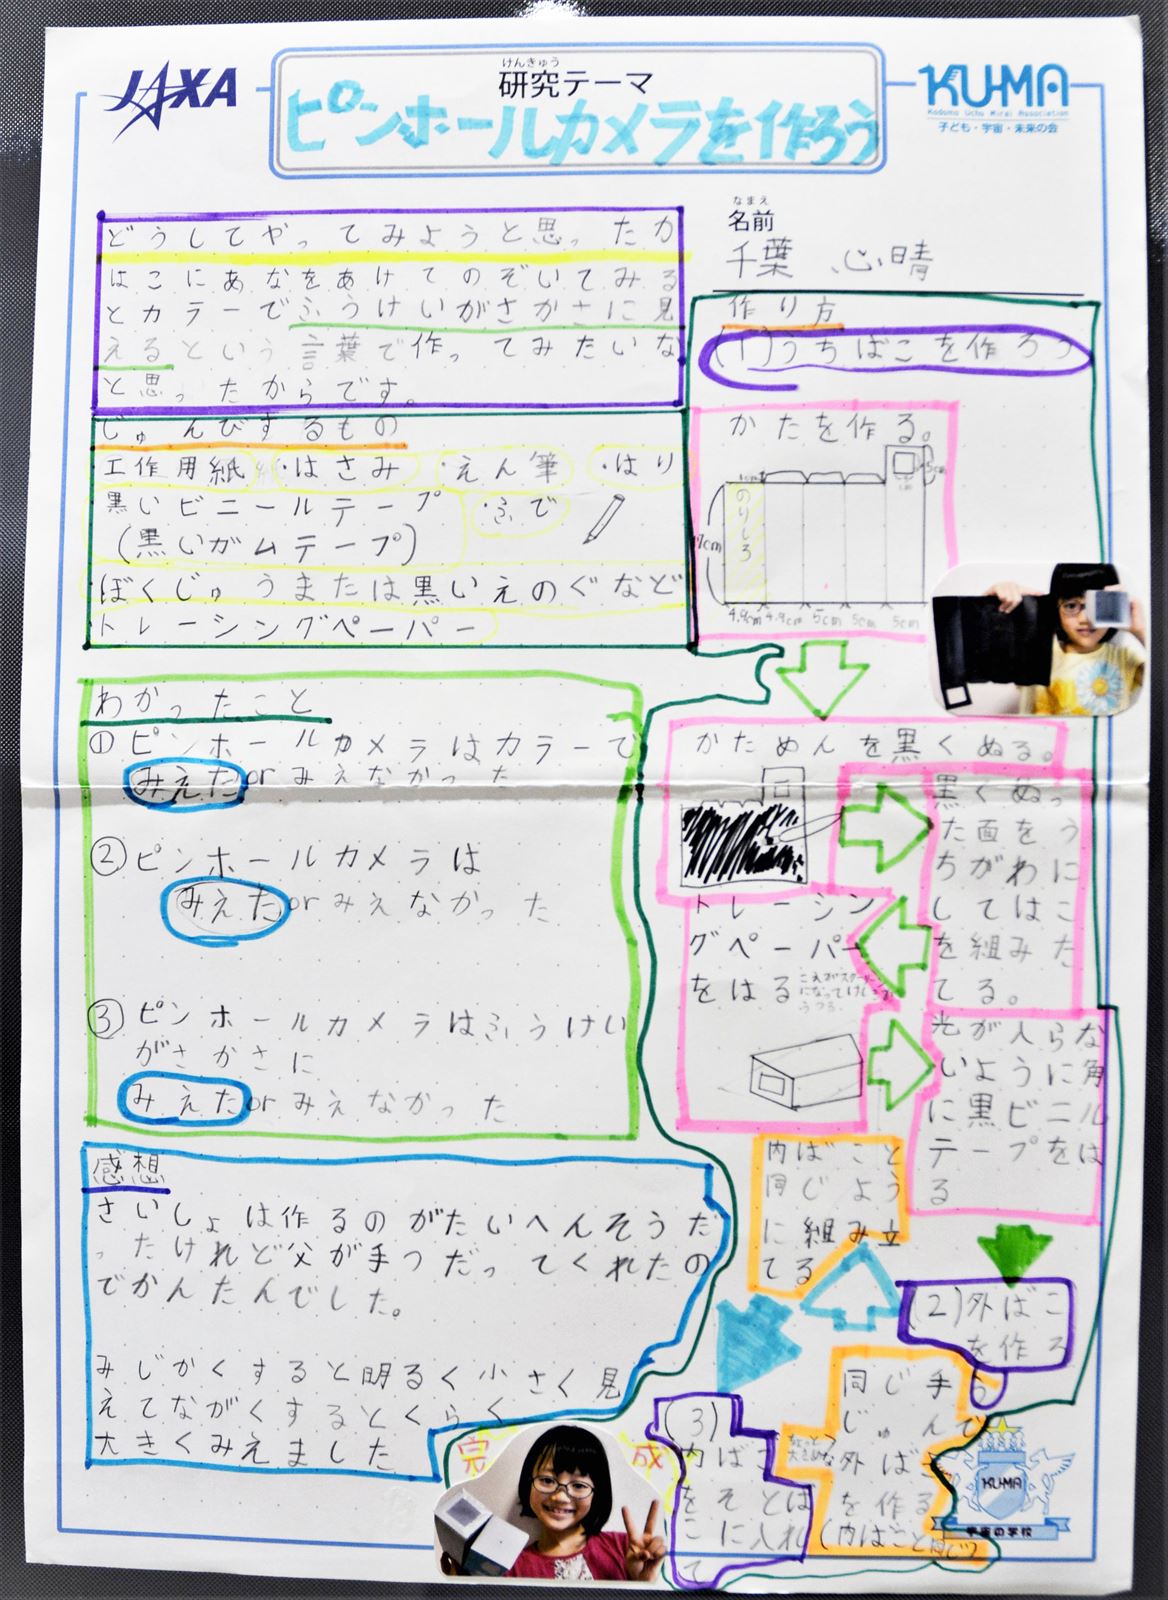 JAXA
けんきゅう
研究テーマ
ピンホールカメラを作ろう
KU-MA
Kodomo Uchu Mirai Association
子ども・宇宙・未来の会
なまえ
名前
千葉 心晴
どうしてやってみようと思ったか
はこにあなをあけてのぞいてみる
とカラーでふうけいがさかさに見
えるという言葉で作ってみたいな
と思ったからです。
じゅんびするもの
工作用紙 ・はさみ ・えん筆 ・はり
黒いビニールテープ ・ふで
(黒いガムテープ)
ぼくじゅうまたは黒いえのぐなど
トレーシングペーパー
わかったこと
①ピンホールカメラはカラーで
みえたorみえなかった
②ピンホールカメラは
みえたorみえなかった
③ピンホールカメラはふうけい
がさかさに
みえたorみえなかった
感想
さいしょは作るのがたいへんそうだ
ったけれど父が手つだってくれたの
でかんたんでした。
みじかくすると明るく小さく見
えてながくするとくらく
大きくみえました
完成
作り方
(1)うちばこを作ろう
かたを作る。
のりしろ
4.9cm 4.9cm 5cm 5cm 5cm
かためんを黒くぬる。
黒くぬっ
た面をう
ちがわに
してはこ
を組みた
てる。
トレーシン
グペーパー
をはる
光が入らな
いように角
に黒ビニル
テープをは
る
(2)外ばこ
を作ろう
同じ手
じゅんで
外ばこ
を作る
(内ばこと同じ)
内ばこと
同じよう
に組み立
てる
(3)
内ばこ
をそとば
こに入れ
て
KU-MA
宇宙の学校